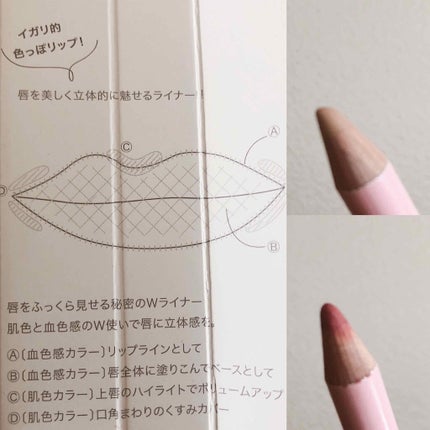 イガリ的
色っぽリップ!
唇を美しく立体的に魅せるライナー!!
Ⓐ
Ⓒ
Ⓓ
Ⓑ
唇をふっくら見せる秘密のWライナー
肌色と血色感のW使いで唇に立体感を。
Ⓐ〔血色感カラー〕リップラインとして
Ⓑ〔血色感カラー〕唇全体に塗りこんでベースとして
Ⓒ〔肌色カラー〕上唇のハイライトでボリュームアップ
Ⓓ〔肌色カラー〕口角まわりのくすみカバー